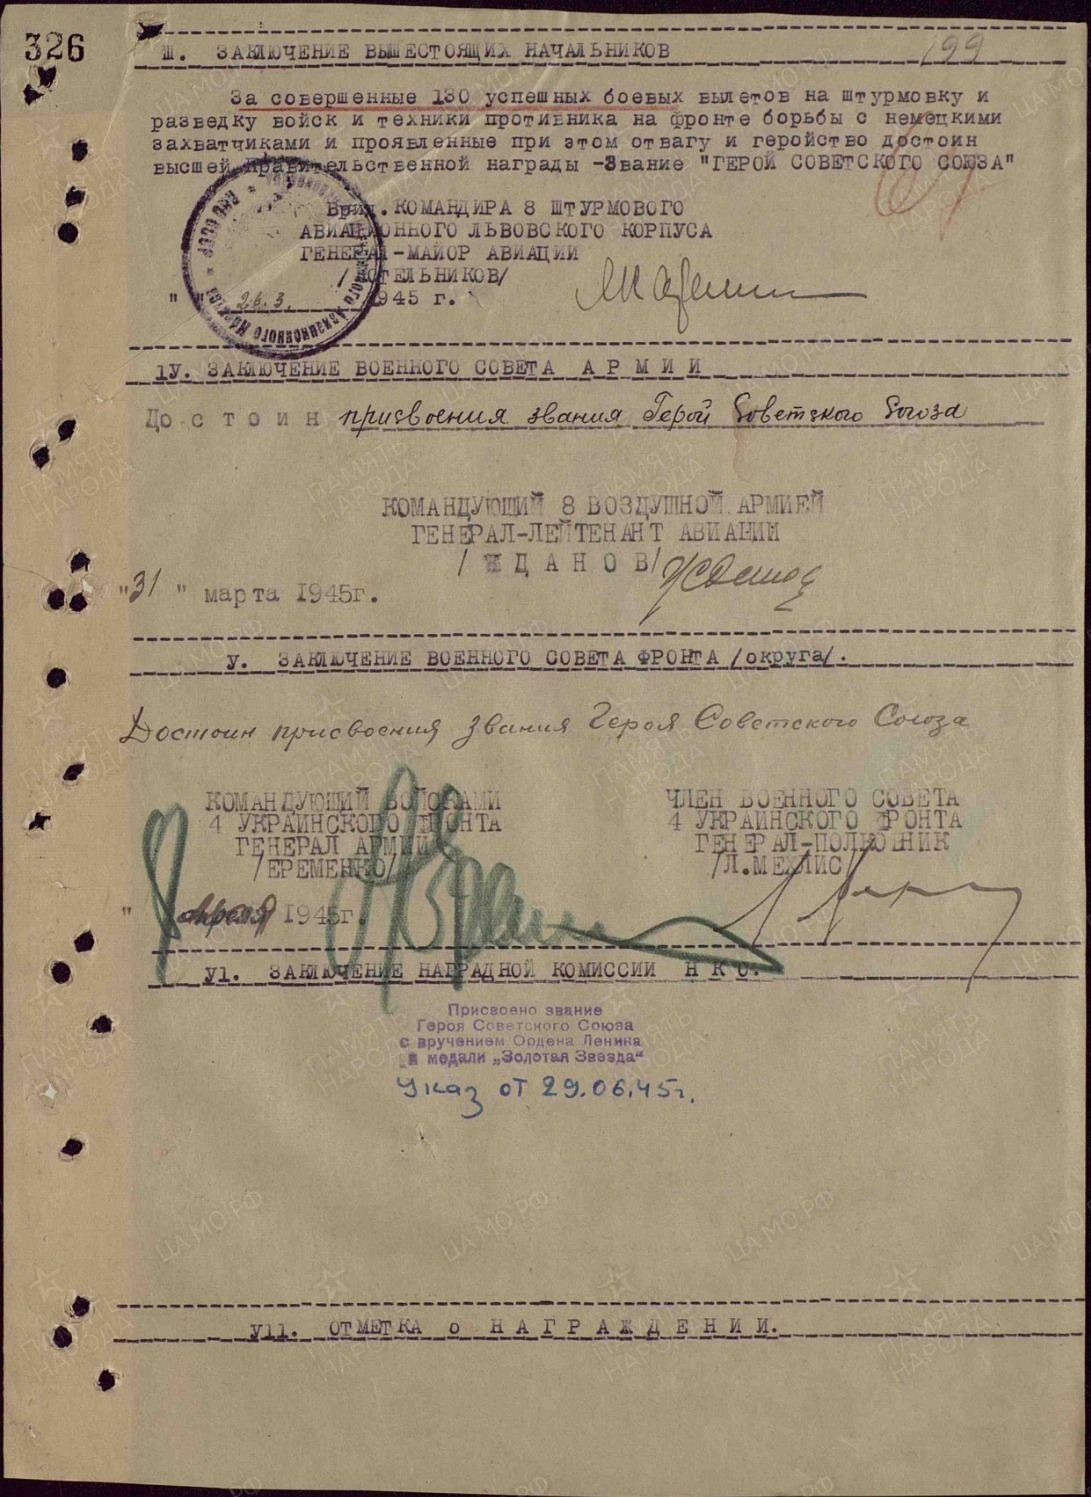 326
199
Ш. ЗАКЛЮЧЕНИЕ ВЫШЕСТОЯЩИХ НАЧАЛЬНИКОВ
За совершенные 130 успешных боевых вылетов на штурмовку и
разведку войск и техники противника на фронте борьбы с немецкими
захватчиками и проявленные при этом отвагу и геройство достоин
высшей правительственной награды -Звание "ГЕРОЙ СОВЕТСКОГО СОЮЗА"
Врид. КОМАНДИРА 8 ШТУРМОВОГО
АВИАЦИОННОГО ЛЬВОВСКОГО КОРПУСА
ГЕНЕРАЛ-МАЙОР АВИАЦИИ
/КОТЕЛЬНИКОВ/
" " 26.3. 1945 г.
1У. ЗАКЛЮЧЕНИЕ ВОЕННОГО СОВЕТА А Р М И И
Д о с т о и н присвоения звания Герой Советского Союза
КОМАНДУЮЩИЙ 8 ВОЗДУШНОЙ АРМИЕЙ
ГЕНЕРАЛ-ЛЕЙТЕНАНТ АВИАЦИИ
/ Ж Д А Н О В/
"31" марта 1945г.
У. ЗАКЛЮЧЕНИЕ ВОЕННОГО СОВЕТА ФРОНТА /округа/.
Достоин присвоения звания Героя Советского Союза
КОМАНДУЮЩИЙ ВОЙСКАМИ
4 УКРАИНСКОГО ФРОНТА
ГЕНЕРАЛ АРМИИ
/ЕРЕМЕНКО/
ЧЛЕН ВОЕННОГО СОВЕТА
4 УКРАИНСКОГО ФРОНТА
ГЕНЕРАЛ-ПОЛКОВНИК
/Л.МЕХЛИС/
" апреля 1945г.
У1. ЗАКЛЮЧЕНИЕ НАГРАДНОЙ КОМИССИИ Н К О.
Присвоено звание
Героя Советского Союза
с вручением Ордена Ленина
и медали „Золотая Звезда"
Указ от 29.06.45г.
У11. ОТМЕТКА о Н А Г Р А Ж Д Е Н И И.